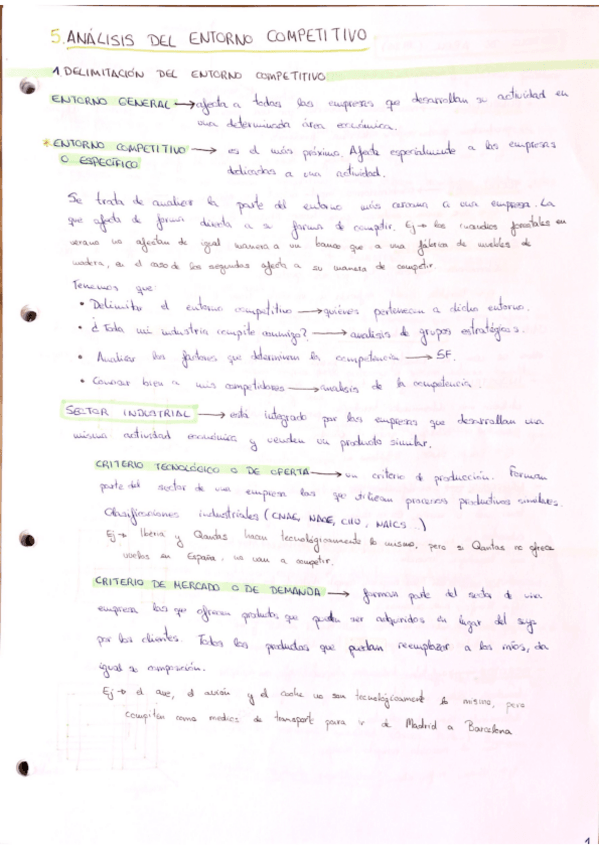 5. ANÁLISIS DEL ENTORNO COMPETITIVO
1 DELIMITACIÓN DEL ENTORNO COMPETITIVO
ENTORNO GENERAL → afecta a todas las empresas que desarrollan su actividad en
una determinada área económica.
* ENTORNO COMPETITIVO → es el más próximo. Afecta especialmente a las empresas
O ESPECÍFICO dedicadas a una actividad.
Se trata de analizar la parte del entorno más cercana a una empresa. La
que afecta de forma directa a su forma de competir. Ej → los incendios forestales en
verano no afectan de igual manera a un banco que a una fábrica de muebles de
madera, en el caso de los segundos afecta a su manera de competir.
Tenemos que:
• Delimitar el entorno competitivo → quiénes pertenecen a dicho entorno.
• ¿Toda mi industria compite conmigo? → análisis de grupos estratégicos.
• Analizar los factores que determinan la competencia → 5F.
• Conocer bien a mis competidores → análisis de la competencia
SECTOR INDUSTRIAL → está integrado por las empresas que desarrollan una
misma actividad económica y venden un producto similar.
CRITERIO TECNOLÓGICO O DE OFERTA → un criterio de producción. Forman
parte del sector de una empresa las que utilizan procesos productivos similares.
Clasificaciones industriales (CNAE, NACE, CIIU, NAICS...)
Ej → Iberia y Qantas hacen tecnológicamente lo mismo, pero si Qantas no ofrece
vuelos en España, no van a competir.
CRITERIO DE MERCADO O DE DEMANDA → forman parte del sector de una
empresa las que ofrecen productos que puedan ser adquiridos en lugar del suyo
por los clientes. Todos los productos que puedan reemplazar a los míos, da
igual su composición.
Ej → el ave, el avión y el coche no son tecnológicament lo mismo, pero
compiten como medios de transporte para ir de Madrid a Barcelona
1